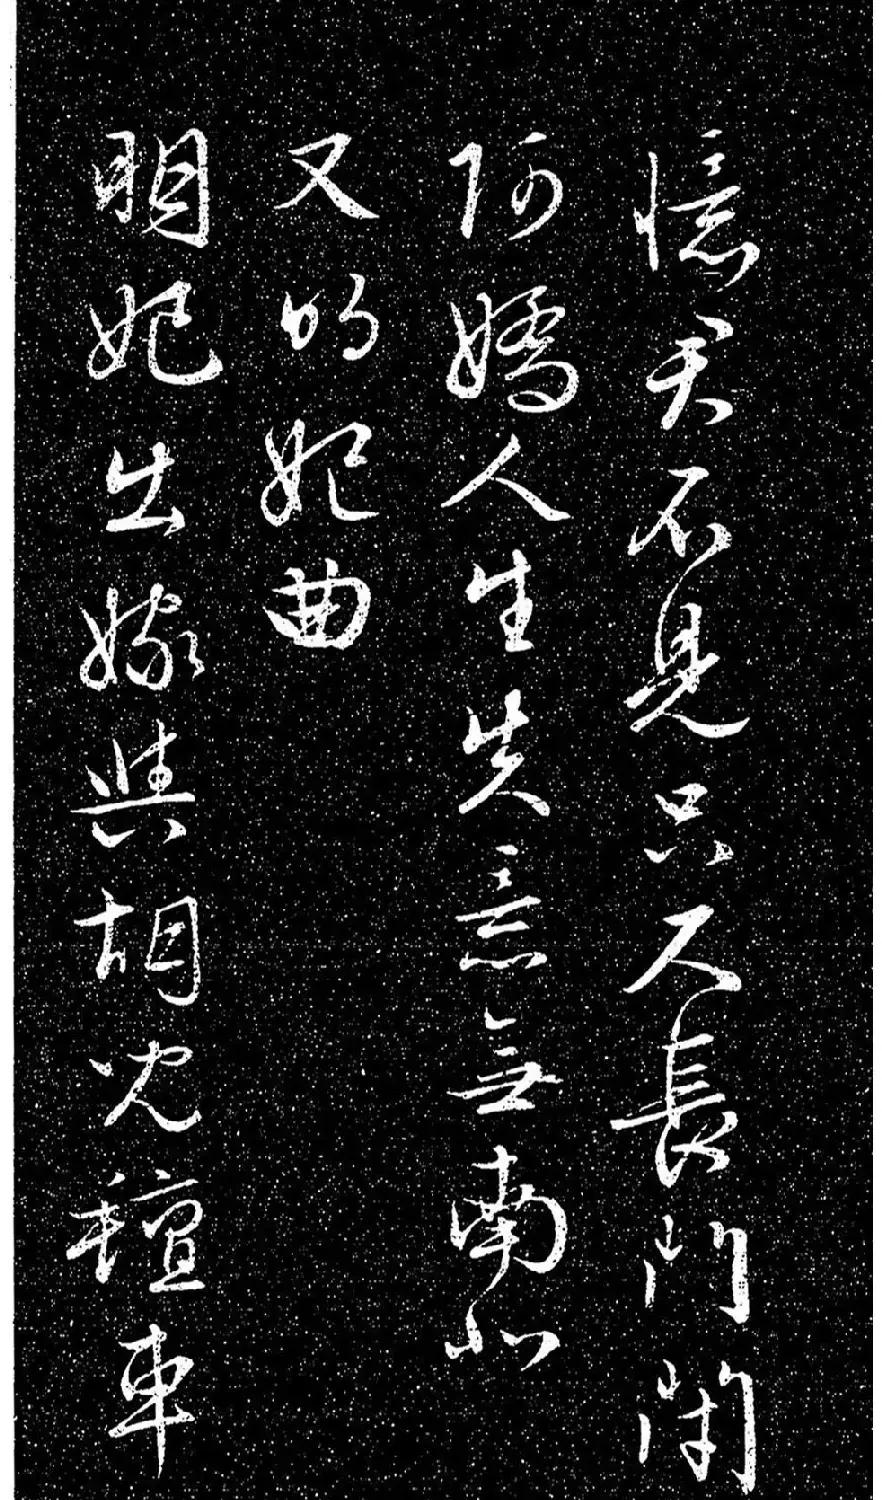 憶君不見只尺長門閉
阿嬌人生失意無南北
又明妃曲
明妃出嫁與胡兒氈車